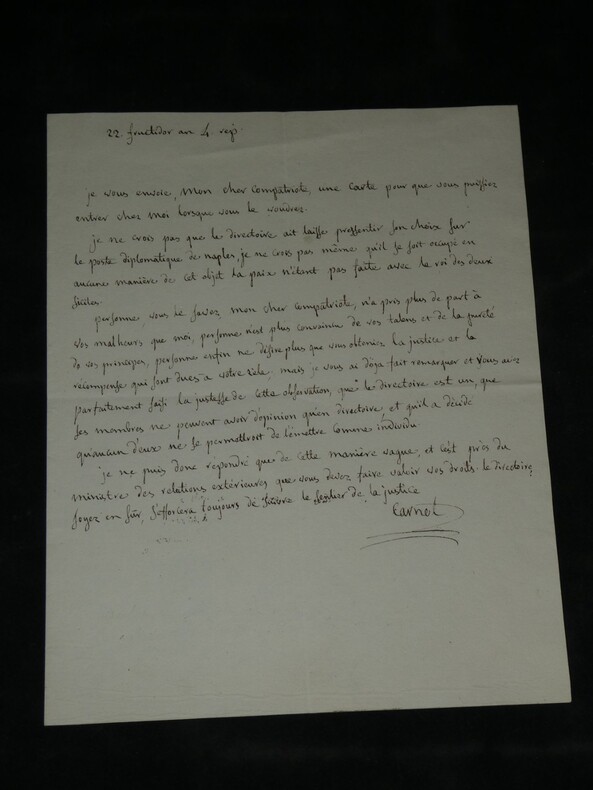 22. fructidor an 4. rep.
je vous envoie, mon cher compatriote, une carte pour que vous puissiez
entrer chez moi lorsque vous le voudrez.
je ne crois pas que le directoire ait laissé pressentir son choix sur
le poste diplomatique de naples, je ne crois pas même qu'il se soit occupé en
aucune manière de cet objet la paix n'étant pas faite avec le roi des deux
siciles.
personne vous le savez, mon cher compatriote, n'a pris plus de part à
vos malheurs que moi, personne n'est plus convaincu de vos talens et de la pureté
de vos principes, personne enfin ne désire plus que vous obteniez la justice et la
récompense qui sont dues à votre zèle, mais je vous ai déja fait remarquer et vous avez
parfaitement saisi la justesse de cette observation, que le directoire est un, que
ses membres ne peuvent avoir d'opinion qu'en directoire, et qu'il a décidé
qu'aucun d'eux ne se permettroit de l'émettre comme individu
je ne puis donc répondre que de cette manière vague, et c'est près du
ministre des relations extérieures que vous devez faire valoir vos droits. le directoire,
soyez en sûr, s'efforcera toujours de suivre le sentier de la justice
Carnot